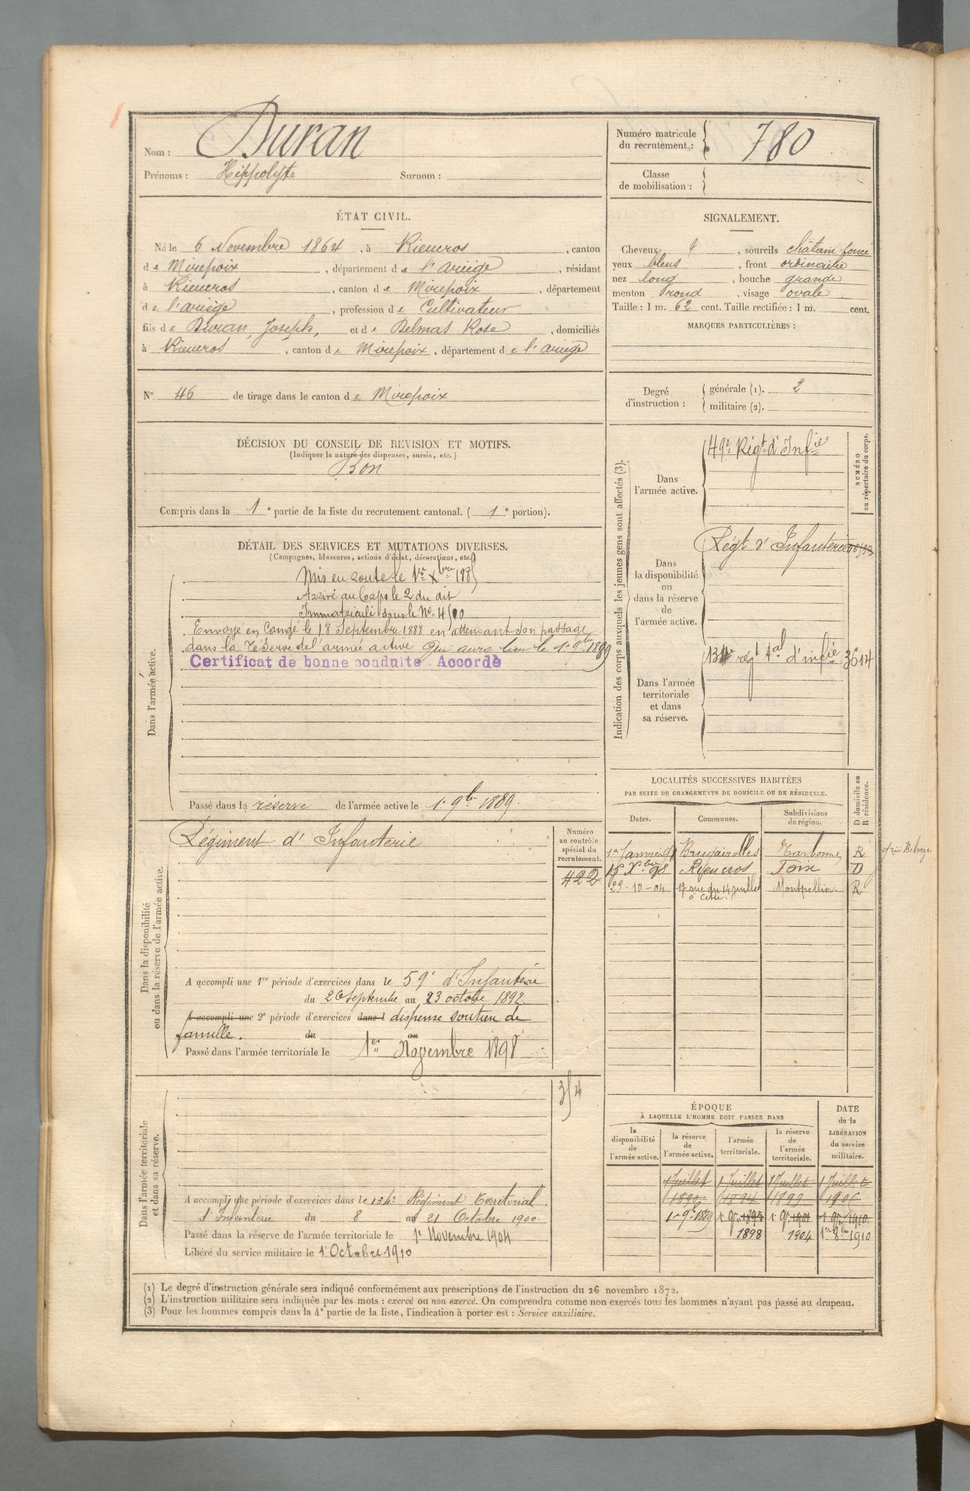 Nom : Duran
Prénoms : Hippolyte Surnom :
Numéro matricule du recrutement : 780
Classe de mobilisation :
ÉTAT CIVIL.
Né le 6 Novembre 1864, à Rieucros, canton
de Mirepoix, département de l'ariège, résidant
à Rieucros, canton de Mirepoix, département
de l'ariège, profession de Cultivateur
fils de Duran, Joseph, et de Delmas Rose, domiciliés
à Rieucros, canton de Mirepoix, département de l'ariège
SIGNALEMENT.
Cheveux, sourcils châtain foncé
yeux bleus, front ordinaire
nez long, bouche grande
menton rond, visage ovale
Taille : 1 m. 62 cent. Taille rectifiée : 1 m. cent.
MARQUES PARTICULIÈRES :
N° 46 de tirage dans le canton de Mirepoix
Degré d'instruction : générale (1). 2
militaire (2).
DÉCISION DU CONSEIL DE REVISION ET MOTIFS.
(Indiquer la nature des dispenses, sursis, etc.)
Bon
Compris dans la 1e partie de la liste du recrutement cantonal. (1e portion).
DÉTAIL DES SERVICES ET MUTATIONS DIVERSES.
(Campagnes, blessures, actions d'éclat, décorations, etc.)
Dans l'armée active.
Mis en route le 1er Xbre 1885
Arrivé au Corps le 2 du dit
Immatriculé sous le No. 4500
Envoyé en Congé le 18 Septembre 1888 en attendant son passage
dans la réserve de l'armée active qui aura lieu le 1er 9bre 1889
Certificat de bonne conduite Accordé
Passé dans la réserve de l'armée active le 1er 9bre 1889.
Indication des corps auxquels les jeunes gens sont affectés (3).
NUMÉRO au répertoire du corps.
Dans l'armée active.
49e Régt d'Infie
Dans la disponibilité ou dans la réserve de l'armée active.
Régt d'Infanterie
Dans l'armée territoriale et dans sa réserve.
134e régt tal d'infie 3614
LOCALITÉS SUCCESSIVES HABITÉES
PAR SUITE DE CHANGEMENTS DE DOMICILE OU DE RÉSIDENCE.
Dates. Communes. Subdivisions de région. D domicile ou R résidence.
1er Janvier Brugairolles Narbonne R
15 Xbre 98 Rieucros Foix D
29-10-04 rue du 14 juillet à Cette. Montpellier R
Dans la disponibilité ou dans la réserve de l'armée active.
Régiment d'Infanterie
Numéro au contrôle spécial du recrutement.
422
A accompli une 1re période d'exercices dans le 59e d'Infanterie
du 26 Septembre au 23 octobre 1892
A accompli une 2e période d'exercices dans l dispensé soutien de
famille. du au
Passé dans l'armée territoriale le 1er Novembre 1898
Dans l'armée territoriale et dans sa réserve.
354
A accompli une période d'exercices dans le 134e Régiment Territorial
d'Infanterie du 8 au 21 Octobre 1900
Passé dans la réserve de l'armée territoriale le 1er Novembre 1904
Libéré du service militaire le 1er Octobre 1910
ÉPOQUE
À LAQUELLE L'HOMME DOIT PASSER DANS
DATE de la LIBÉRATION du service militaire.
la disponibilité de l'armée active. la réserve de l'armée active. l'armée territoriale. la réserve de l'armée territoriale.
1 Juillet 1 Juillet 1 Juillet 1 Juillet
1894 1899
1er 9bre 1889 1er 9bre 1895 1er 9bre 1901 1er 9bre 1910
1898 1904 1er 8bre 1910
(1) Le degré d'instruction générale sera indiqué conformément aux prescriptions de l'instruction du 26 novembre 1872.
(2) L'instruction militaire sera indiquée par les mots : exercé ou non exercé. On comprendra comme non exercés tous les hommes n'ayant pas passé au drapeau.
(3) Pour les hommes compris dans la 4e partie de la liste, l'indication à porter est : Service auxiliaire.